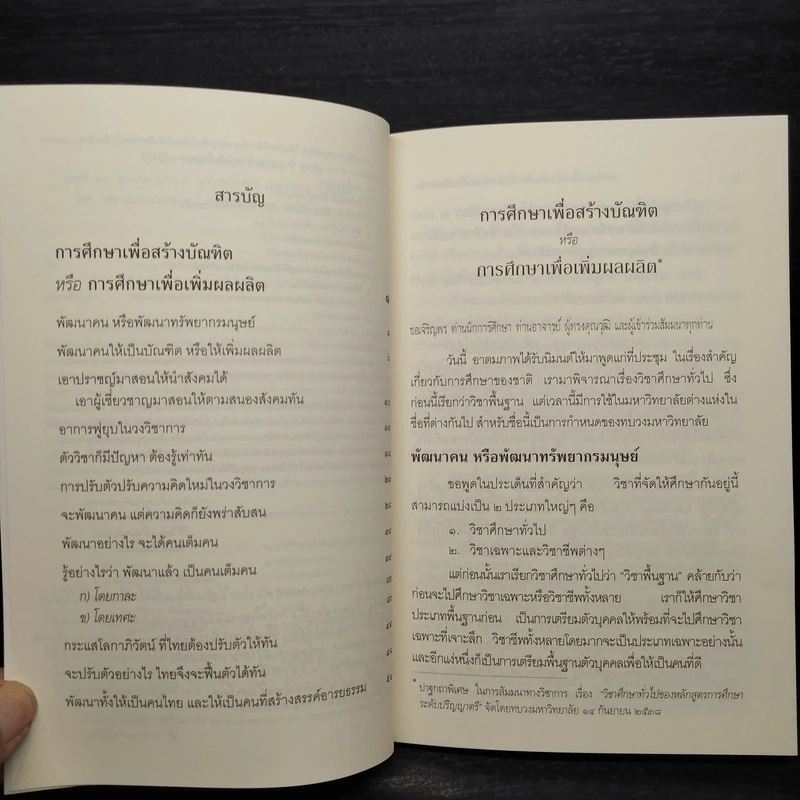 สารบัญ
การศึกษาเพื่อสร้างบัณฑิต
หรือ การศึกษาเพื่อเพิ่มผลผลิต ๑
พัฒนาคน หรือพัฒนาทรัพยากรมนุษย์ ๑
พัฒนาคนให้เป็นบัณฑิต หรือให้เพิ่มผลผลิต
เอาปราชญ์มาสอนให้นำสังคมได้
เอาผู้เชี่ยวชาญมาสอนให้ตามสนองสังคมทัน
อาการฟูยุบในวงวิชาการ
ตัววิชาก็มีปัญหา ต้องรู้เท่าทัน
การปรับตัวปรับความคิดใหม่ในวงวิชาการ
จะพัฒนาคน แต่ความคิดก็ยังพร่าสับสน
พัฒนาอย่างไร จะได้คนเต็มคน
รู้อย่างไรว่า พัฒนาแล้ว เป็นคนเต็มคน
ก) โดยกาละ
ข) โดยเทศะ
กระแสโลกาภิวัตน์ ที่ไทยต้องปรับตัวให้ทัน
จะปรับตัวอย่างไร ไทยจึงจะฟื้นตัวได้ทัน
พัฒนาทั้งให้เป็นคนไทย และให้เป็นคนที่สร้างสรรค์อารยธรรม
การศึกษาเพื่อสร้างบัณฑิต
หรือ
การศึกษาเพื่อเพิ่มผลผลิต*
ขอเจริญพร ท่านนักการศึกษา ท่านอาจารย์ ผู้ทรงคุณวุฒิ และผู้เข้าร่วมสัมมนาทุกท่าน
วันนี้ อาตมภาพได้รับนิมนต์ให้มาพูดแก่ที่ประชุม ในเรื่องสำคัญ
เกี่ยวกับการศึกษาของชาติ เรามาพิจารณาเรื่องวิชาศึกษาทั่วไป ซึ่ง
ก่อนนี้เรียกว่าวิชาพื้นฐาน แต่เวลานี้มีการใช้ในมหาวิทยาลัยต่างแห่งใน
ชื่อที่ต่างกันไป สำหรับชื่อนี้เป็นการกำหนดของทบวงมหาวิทยาลัย
พัฒนาคน หรือพัฒนาทรัพยากรมนุษย์
ขอพูดในประเด็นที่สำคัญว่า วิชาที่จัดให้ศึกษากันอยู่นี้
สามารถแบ่งเป็น ๒ ประเภทใหญ่ๆ คือ
๑. วิชาศึกษาทั่วไป
๒. วิชาเฉพาะและวิชาชีพต่างๆ
แต่ก่อนนั้นเราเรียกวิชาศึกษาทั่วไปว่า “วิชาพื้นฐาน” คล้ายกับว่า
ก่อนจะไปศึกษาวิชาเฉพาะหรือวิชาชีพทั้งหลาย เราก็ให้ศึกษาวิชา
ประเภทพื้นฐานก่อน เป็นการเตรียมตัวบุคคลให้พร้อมที่จะไปศึกษาวิชา
เฉพาะที่เจาะลึก วิชาชีพทั้งหลายโดยมากจะเป็นประเภทเฉพาะอย่างนั้น
และอีกแง่หนึ่งก็เป็นการเตรียมพื้นฐานตัวบุคคลเพื่อให้เป็นคนที่ดี
* ปาฐกถาพิเศษ ในการสัมมนาทางวิชาการ เรื่อง “วิชาศึกษาทั่วไปของหลักสูตรการศึกษา
ระดับปริญญาตรี” จัดโดยทบวงมหาวิทยาลัย ๑๔ กันยายน ๒๕๓๘